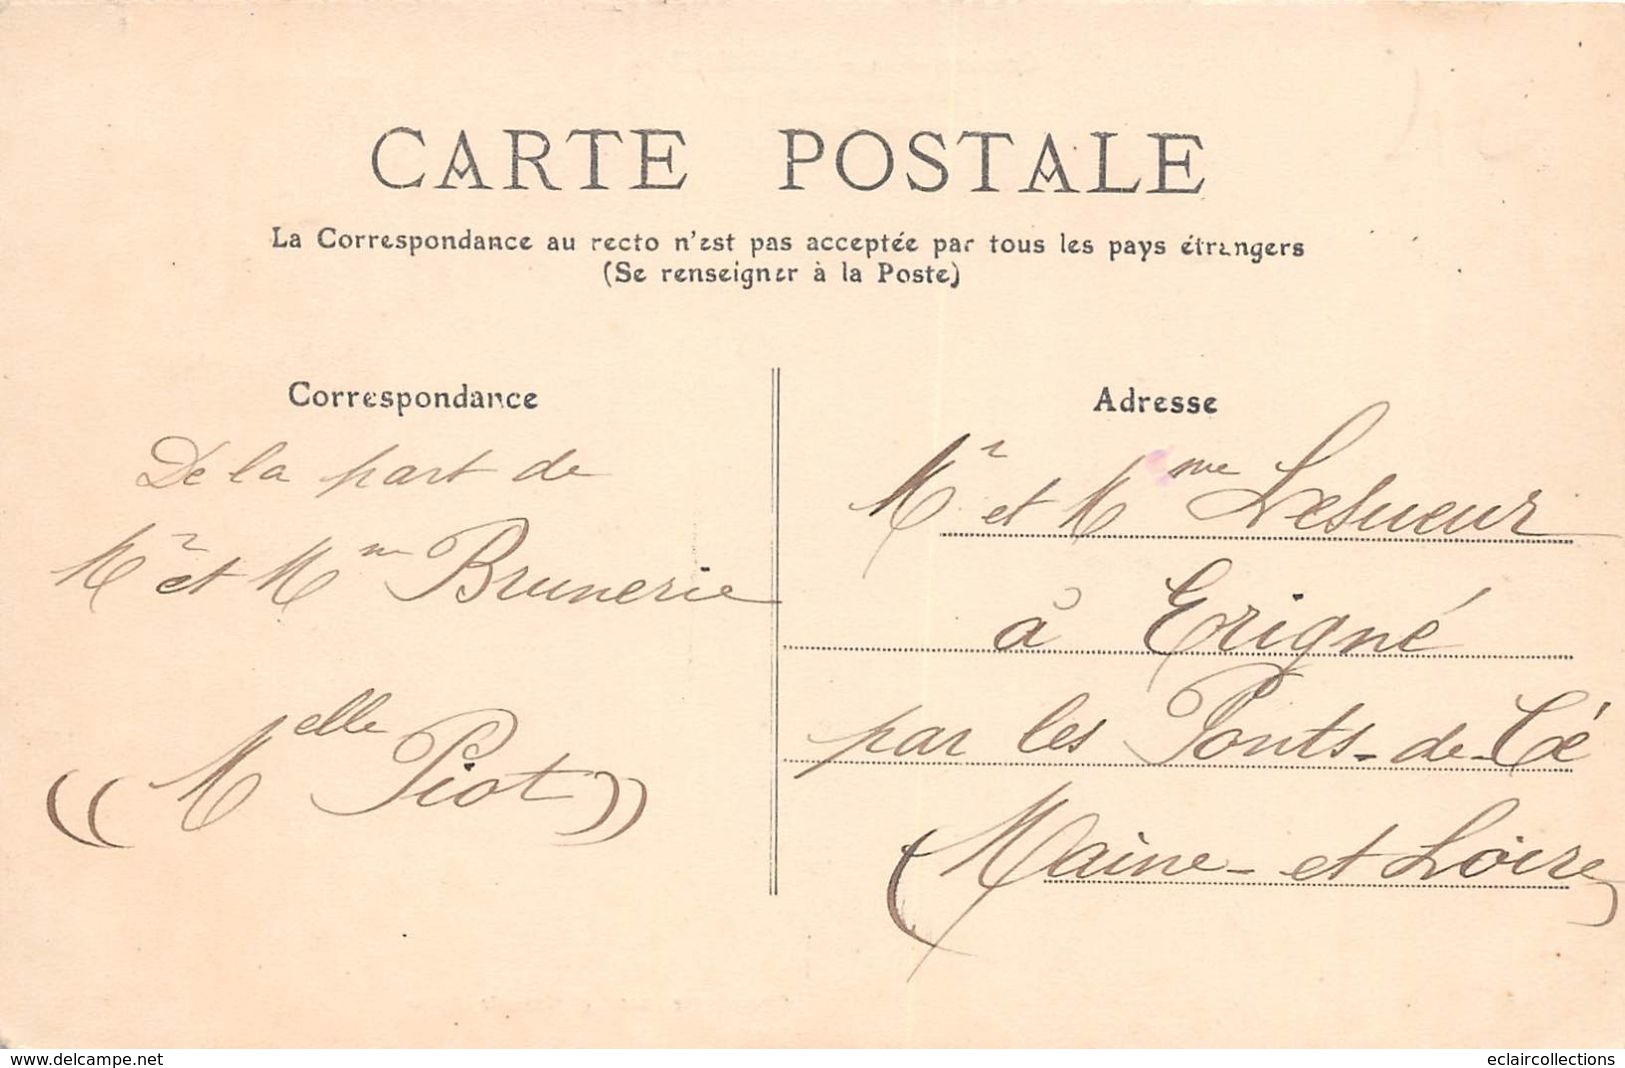 CARTE POSTALE
La Correspondance au recto n'est pas acceptée par tous les pays étrangers
(Se renseigner à la Poste)
Correspondance
De la part de
Mr et Mme Brunerie
((Melle Piot))
Adresse
Mr et Mme Lesueur
à Erigné
par les Ponts-de-Cé
(Maine-et Loire)
www.delcampe.net
eclaircollections